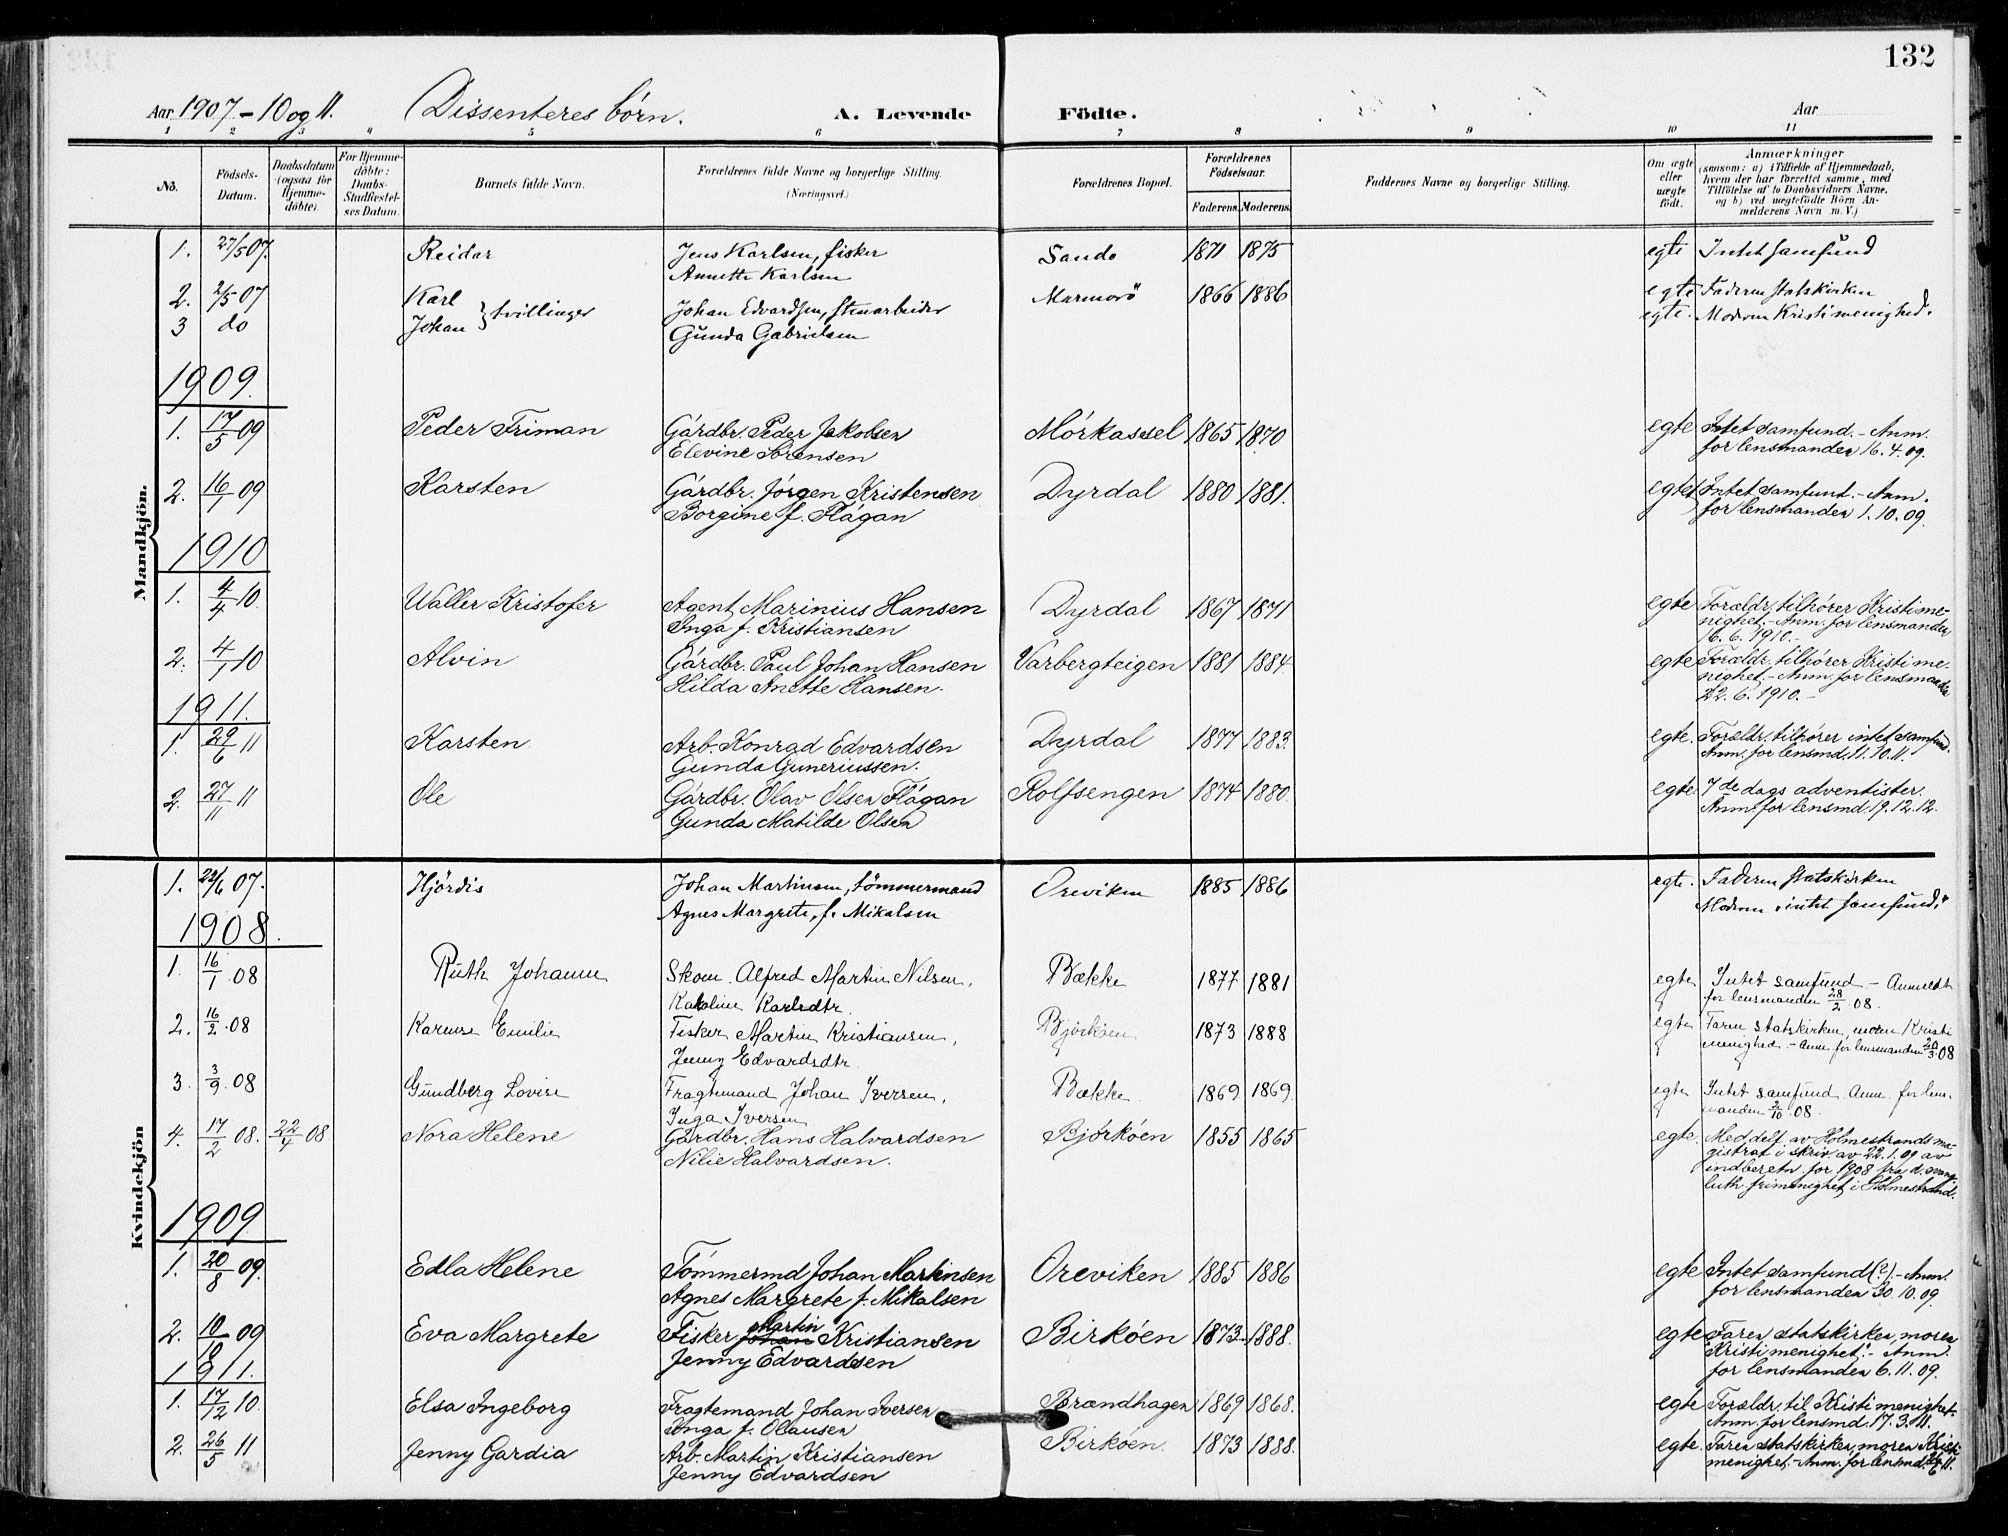 132
Aar 1907 - 10 og 11. Dissenteres børn. A. Levende Födte. Aar
1 2 3 4 5 6 7 8 9 10 11
No. Födsels-Datum. Daabsdatum (ogsaa for Hjemme-döbte). For Hjemme-döbte: Daabs-Stadfæstel-ses Datum. Barnets fulde Navn. Forældrenes fulde Navne og borgerlige Stilling. (Næringsvei.) Forældrenes Bopæl. Forældrenes Födselsaar. Faderens. Moderens. Faddernes Navne og borgerlige Stilling. Om ægte eller uægte födt. Anmærkninger (saasom: a) i Tilfælde af Hjemmedaab, hvem der har forrettet samme, med Tilföielse af to Daabsvidners Navne, og b) ved uægtefödte Börn An-melderens Navn m. V.)
Mandkjön.
1. 27/5 07. Reidar Jens Karlsen, fisker Sando 1871 1875 egte Intet samfund
Annette Karlsen
2. 2/5 07 Karl } tvillinger Johan Edvardsen, stenarbeider Marmorö 1866 1886 egte Faderen statskirken
3 do Johan Gunda Gabrielsen egte. Moderen Kristi menighed.
1909.
1. 17/5 09 Peder Friman Gårdbr. Peder Jakobsen Mórkassel 1865 1870 egte Intet samfund. - Anm.
Elevine Sörensen for lensmanden 16.4.09.
2. 16/1 09 Karsten Gårdbr. Jórgen Kristensen Dyrdal 1880 1881. egte Intet samfunt. - Anm.
Borgine f. Flågan for lensmanden 1.10.09.
1910
1. 4/4 10. Waller Kristofer Agent Marinius Hansen Dyrdal 1867 1871 egte Forældr. tilhører Kristi me-
Inga f. Kristiansen nighet. - Anm. for lensmanden
16.6.1910. -
2. 4/1 10 Alvin Gårdbr. Paul Johan Hansen Varbergteigen 1881 1884. egte Forældr. tilhører Kristi me-
Hilda Anette Hansen. nighet. - Anm. for lensmanden
22.6.1910. -
1911.
1. 29/6 11 Karsten Arb. Konrad Edvardsen Dyrdal 1877 1883. egte. Forældr. tilhører intet samfund.
Gunda Guneriussen. Anm. for lensmd. 11.10.11.
2. 27/11 11 Ole Gårdbr. Olav Olsen Flågan Rolfsengen 1874 1880. egte. 7de dags adventister.
Gunda Matilde Olsen Anm. for lensmd. 19.12.12.
Kvindekjön
1. 22/6 07. Hjördis Johan Martinsen, tömmermand Oreviken 1885 1886 egte. Faderen statskirken
Agnes Margrete, f. Mikalsen Moderen "intet samfund."
1908.
1. 16/1 08 Ruth Johanne Skom. Alfred Martin Nilsen, Bække 1877 1881 egte Intet samfund - Anmeldt
Karoline Karlsdtr. for lensmanden 28/2 08.
2. 16/2 08 Karense Emilie Fisker Martin Kristiansen, Bjórkóen 1873 1888 egte Faren statskirken, moren Kristi
Jenny Edvardsdtr. menighed - Anm. for lensmanden 20/3 08
3. 3/9 08 Gundberg Lovise Fragtemand Johan Iversen, Bække 1869 1869. egte Intet samfund. Anm. for lens-
Inga Iversen manden 2/10 08.
4. 17/2 08. 22/4 08 Nora Helene Gårdbr. Hans Halvardsen Bjórkóen 1855 1865 egte. Meddelt av Holmestrands ma-
Nilie Halvardsen. gistrat i skriv. av 22.1.09 av
indberetn. for 1908 fra d. evang.
luth. frimenighet i Holmestrand.
1909
1. 20/8 09. Edla Helene Tómmermd Johan Martinsen Oreviken 1885 1886 egte Intet samfund (?). - Anm.
Agnes Margrete f. Mikalsen for lensmanden 30.10.09.
2. 10/10 09 Eva Margrete Fisker Johan Martin Kristiansen Birkóen 1873 1888. egte Faren statskirken, moren
Jenny Edvardsen "Kristi menighet". - Anm.
for lensmanden 6.11.09.
1911.
1. 17/12 10. Elsa Ingeborg Fragtemand Johan Iversen Brændhagen 1869 1868. egte Forældr. til Kristi menighet.
Inga f. Olausen Anm. for lensmd. 17.3.11.
2. 26/5 11 Jenny Gardia Arb. Martin Kristiansen Birkóen. 1873 1888. egte. Faren statskirken, moren Kristi
Jenny Edvardsen menighet. - Anm. for lensmd. 11.